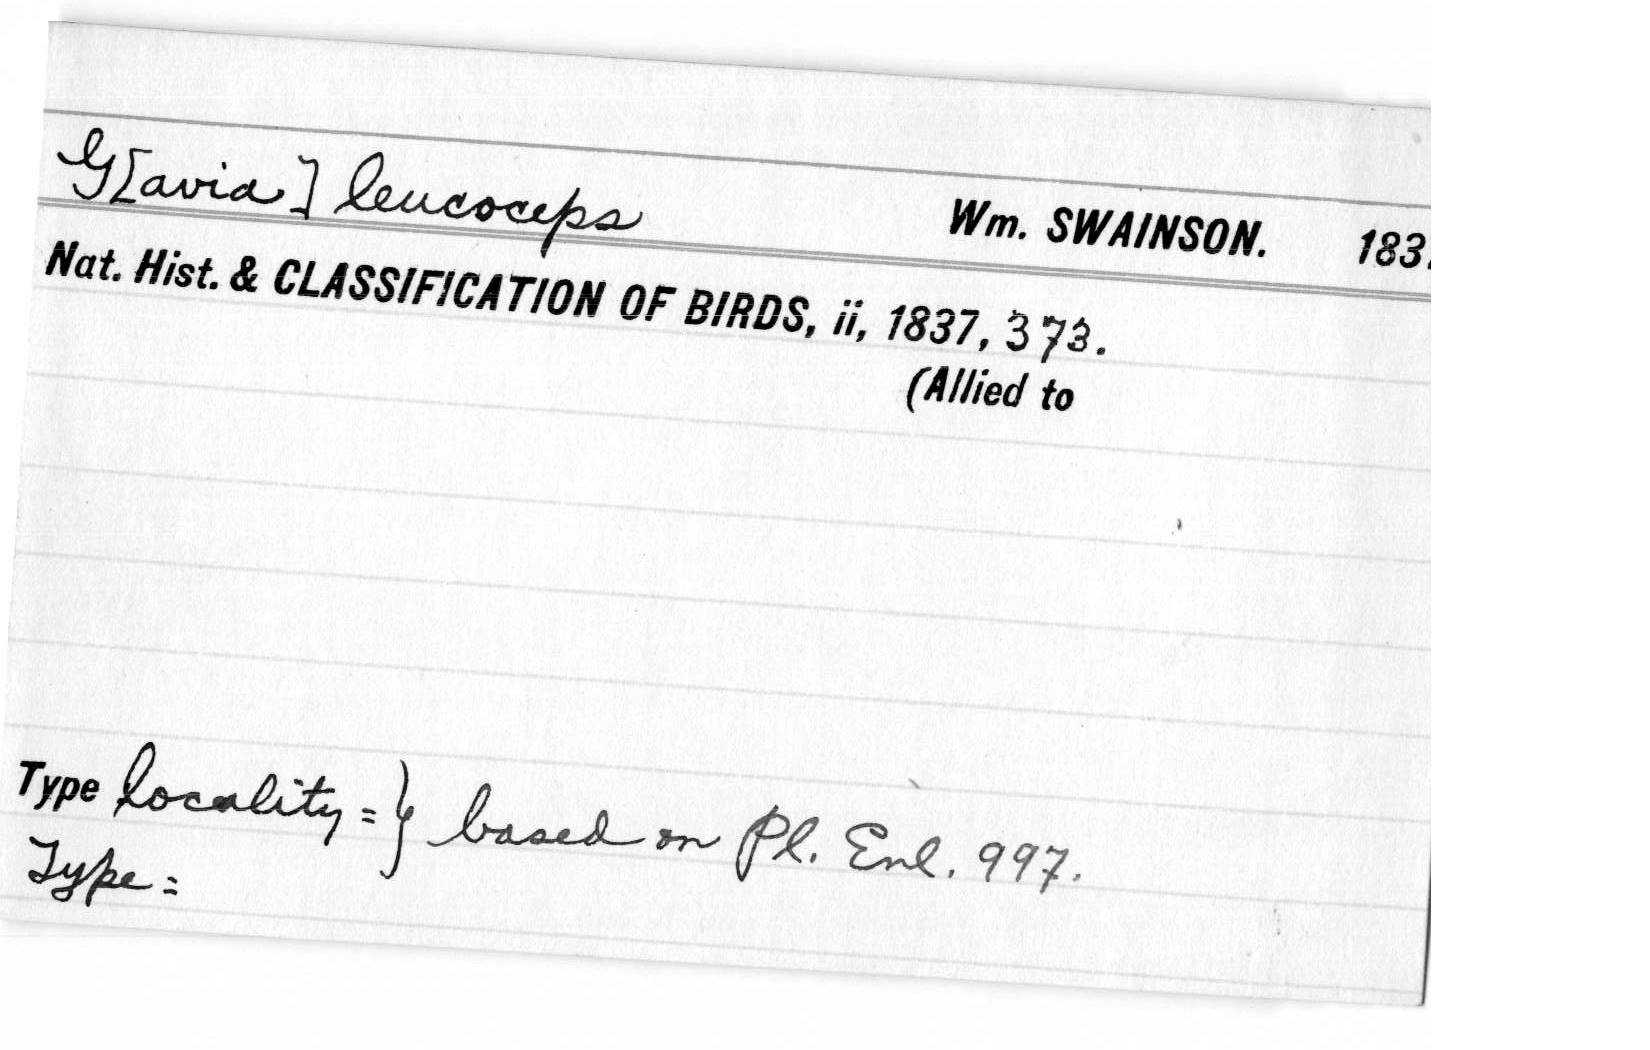 G[avia] leucoceps Wm. SWAINSON. 183
Nat. Hist. & CLASSIFICATION OF BIRDS, ii, 1837, 373.
(Allied to
Type locality = } based on Pl. Enl. 997.
Type =